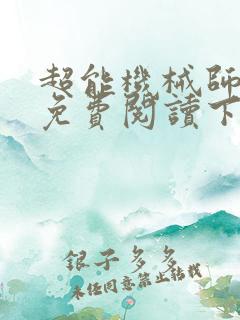 超能機械師
免費閱讀下
銀子多多
未经同意禁止转载